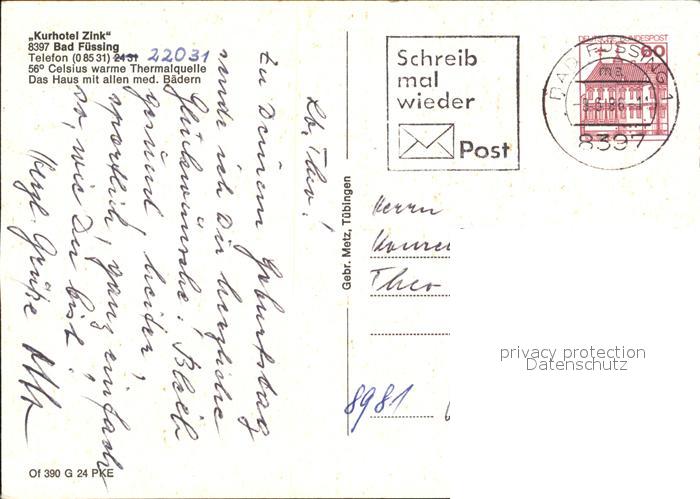 „Kurhotel Zink“
8397 Bad Füssing
Telefon (0 85 31) 2131 22031
56° Celsius warme Thermalquelle
Das Haus mit allen med. Bädern
Lb. Theo!
Zu Deinem Geburtstag
sende ich Dir herzliche
Glückwünsche! Bleib
gesund, heiter,
sportlich, ganz einfach
so, wie Du bist!
Herzl. Grüße
Of 390 G 24 PKE
Gebr. Metz, Tübingen
Schreib
mal
wieder
Post
DEUTSCHE BUNDESPOST
60
BAD FÜSSING 1
ma
8397
Herrn
Theo
8981
privacy protection
Datenschutz